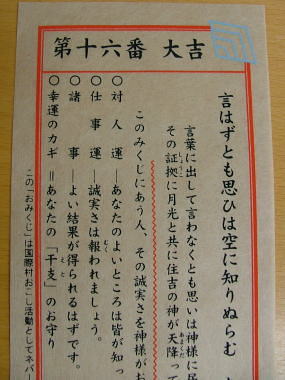 第十六番 大吉
言はずとも思ひは空に知りぬらむ
言葉に出して言わなくとも思いは神様に
その証拠に月光と共に住吉の神が天降って
このみくじにあう人、その誠実さを神様が
○対人運―あなたのよいところは皆が知っ
○仕事運―誠実さは報われましょう。
○諸事―よい結果が得られるはずです。
○幸運のカギ＝あなたの「干支」のお守り
この「おみくじ」は国際村おこし活動としてネパー